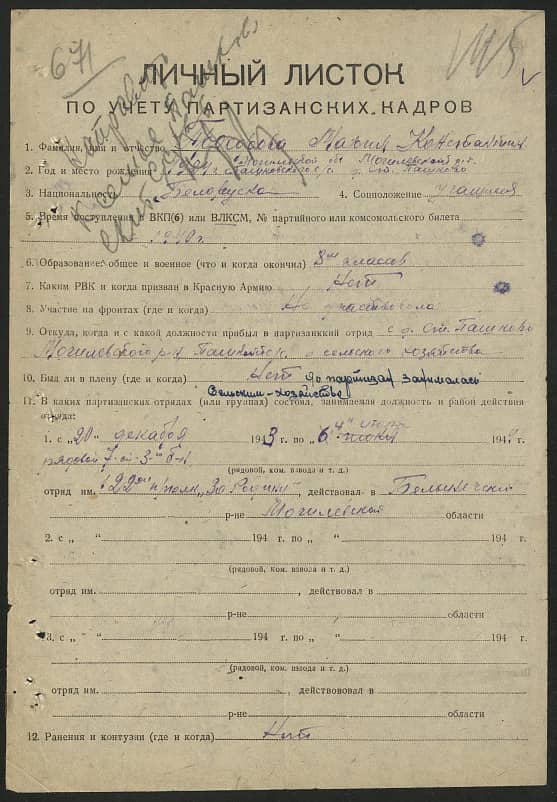 671
ЛИЧНЫЙ ЛИСТОК
ПО УЧЕТУ ПАРТИЗАНСКИХ КАДРОВ
1. Фамилия, имя и отчество Мария
2. Год и место рождения Могилевской об. Могилевский р-н
с/с д. Ст. Пашково
3. Национальность Белоруска 4. Соцположение учащаяся
5. Время поступления в ВКП(б) или ВЛКСМ, № партийного или комсомольского билета
1940 г.
6. Образование: общее и военное (что и когда окончил) 8 классов
7. Каким РВК и когда призван в Красную Армию Нет
8. Участие на фронтах (где и когда) Не участвовала
9. Откуда, когда и с какой должности прибыл в партизанкий отряд с д. Ст. Пашково
Могилевского р-н сельского хозяйства
10. Был ли в плену (где и когда) Нет до партизан занималась
Сельским-хозяйством
11. В каких партизанских отрядах (или группах) состоял, занимаемая должность и район действия
отряда:
1. с „20“ декабря 1943 г. по „6“ июня 194 г.
рядовой 7-ой 3 б-н
(рядовой, ком. взвода и т. д.)
отряд им. 122 п/полк „За Родину“, действовал в Белыничский
р-не Могилевская области
2. с „ “ 194 г. по „ “ 194 г.
(рядовой, ком. взвода и т. д.)
отряд им. , действовал в
р-не области
3. с „ “ 194 г. по „ “ 194 г.
(рядовой, ком. взвода и т. д.)
отряд им. , действововал в
р-не области
12. Ранения и контузии (где и когда) Нет